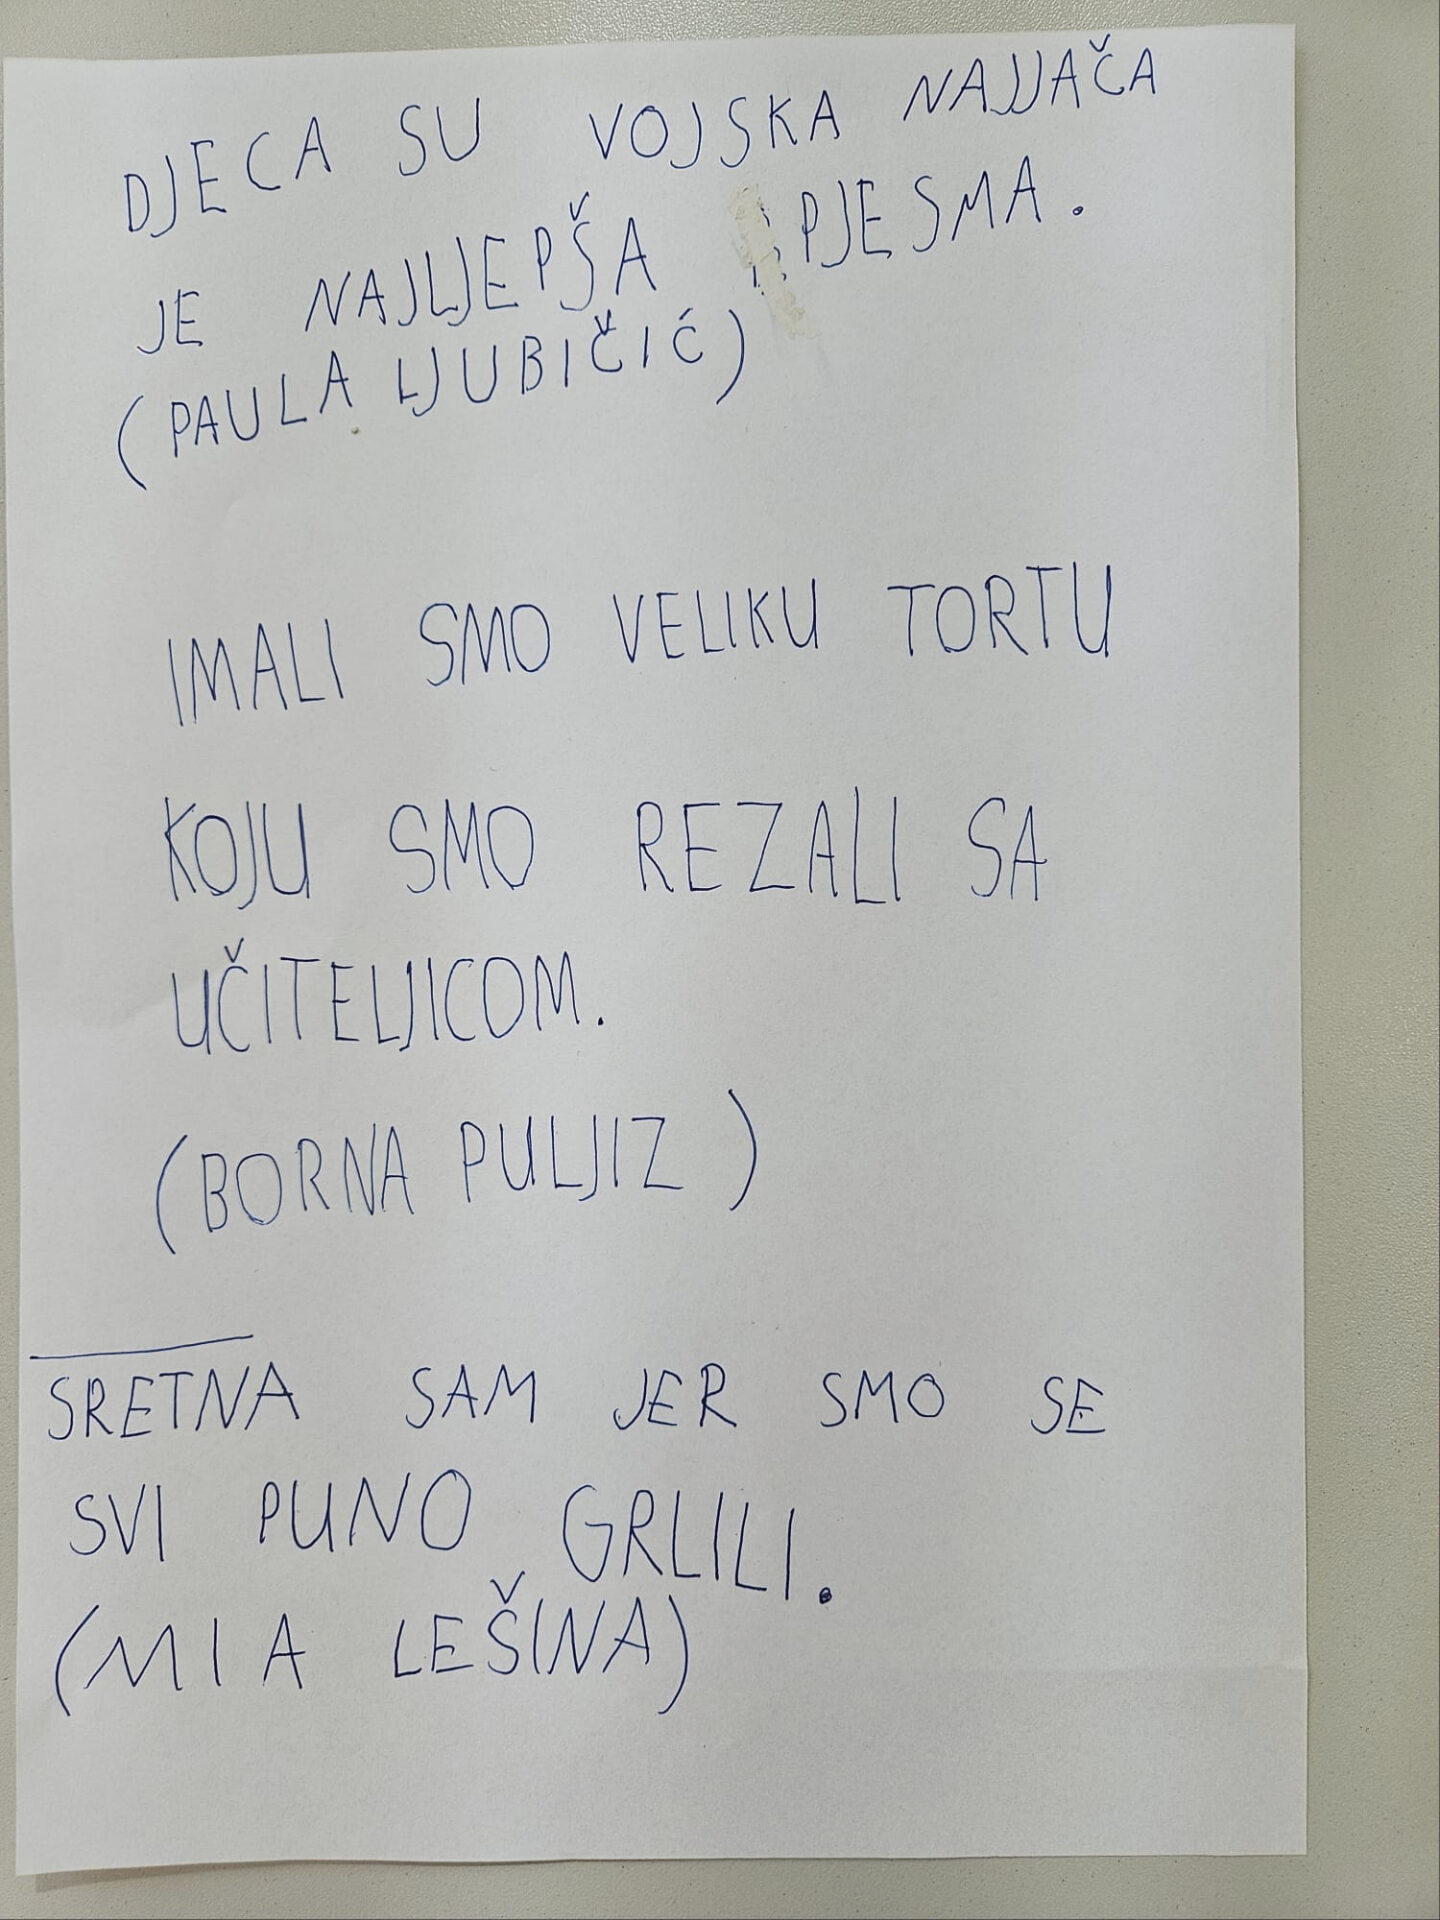 DJECA SU VOJSKA NAJJAČA
JE NAJLJEPŠA PJESMA.
(PAULA LJUBIČIĆ)
IMALI SMO VELIKU TORTU
KOJU SMO REZALI SA
UČITELJICOM.
(BORNA PULJIZ)
SRETNA SAM JER SMO SE
SVI PUNO GRLILI.
(MIA LEŠINA)